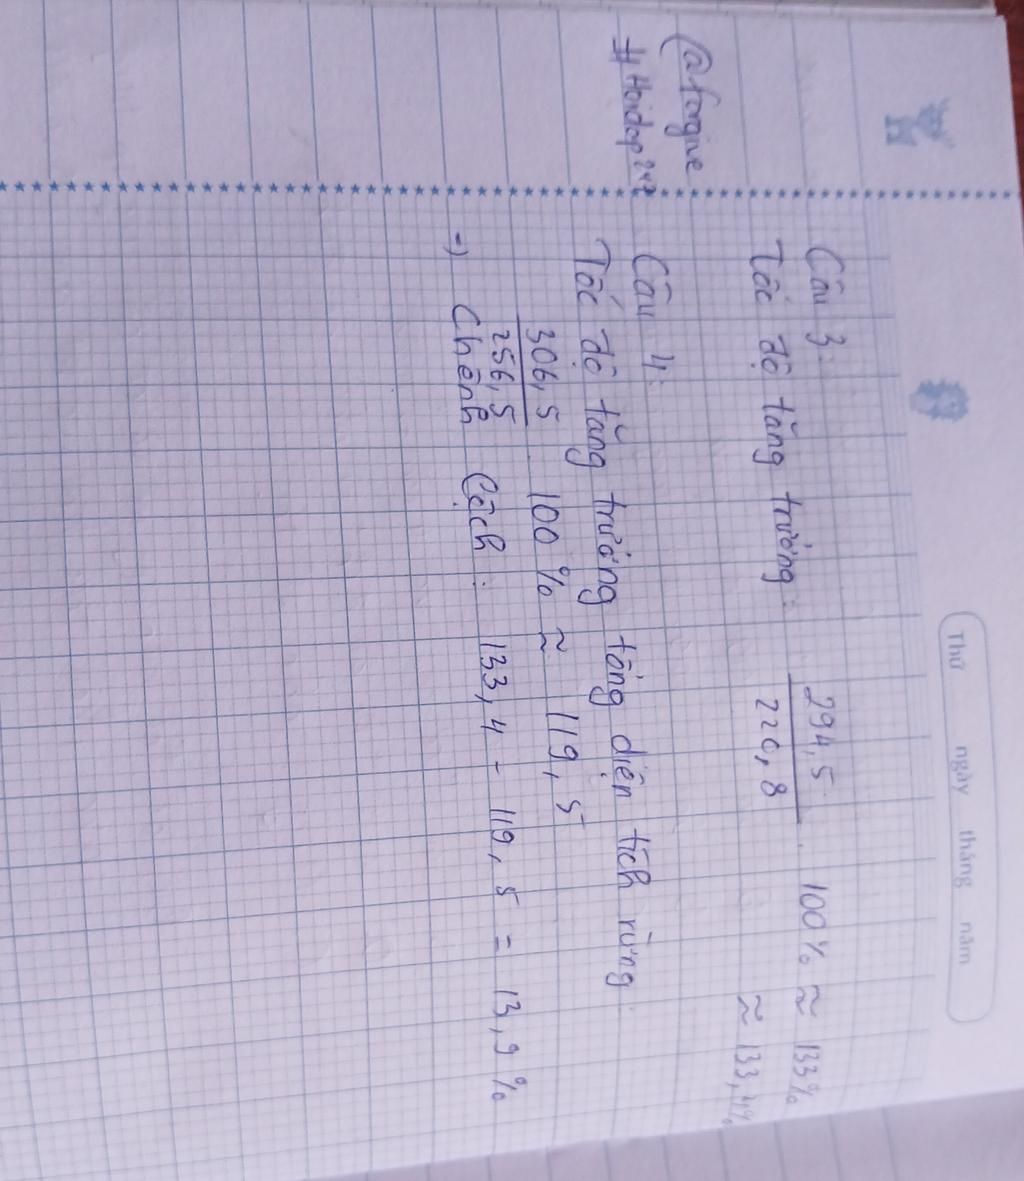 Thứ ngày tháng năm
@forgive
#Hoidap247
Câu 3:
Tốc độ tăng trưởng: 294,5 / 220,8 . 100% ≈ 133%
≈ 133,4%
Câu 4:
Tốc độ tăng trưởng tổng diện tích rừng:
306,5 / 256,5 . 100% ≈ 119,5
=) Chênh Cệch: 133,4 - 119,5 = 13,9%